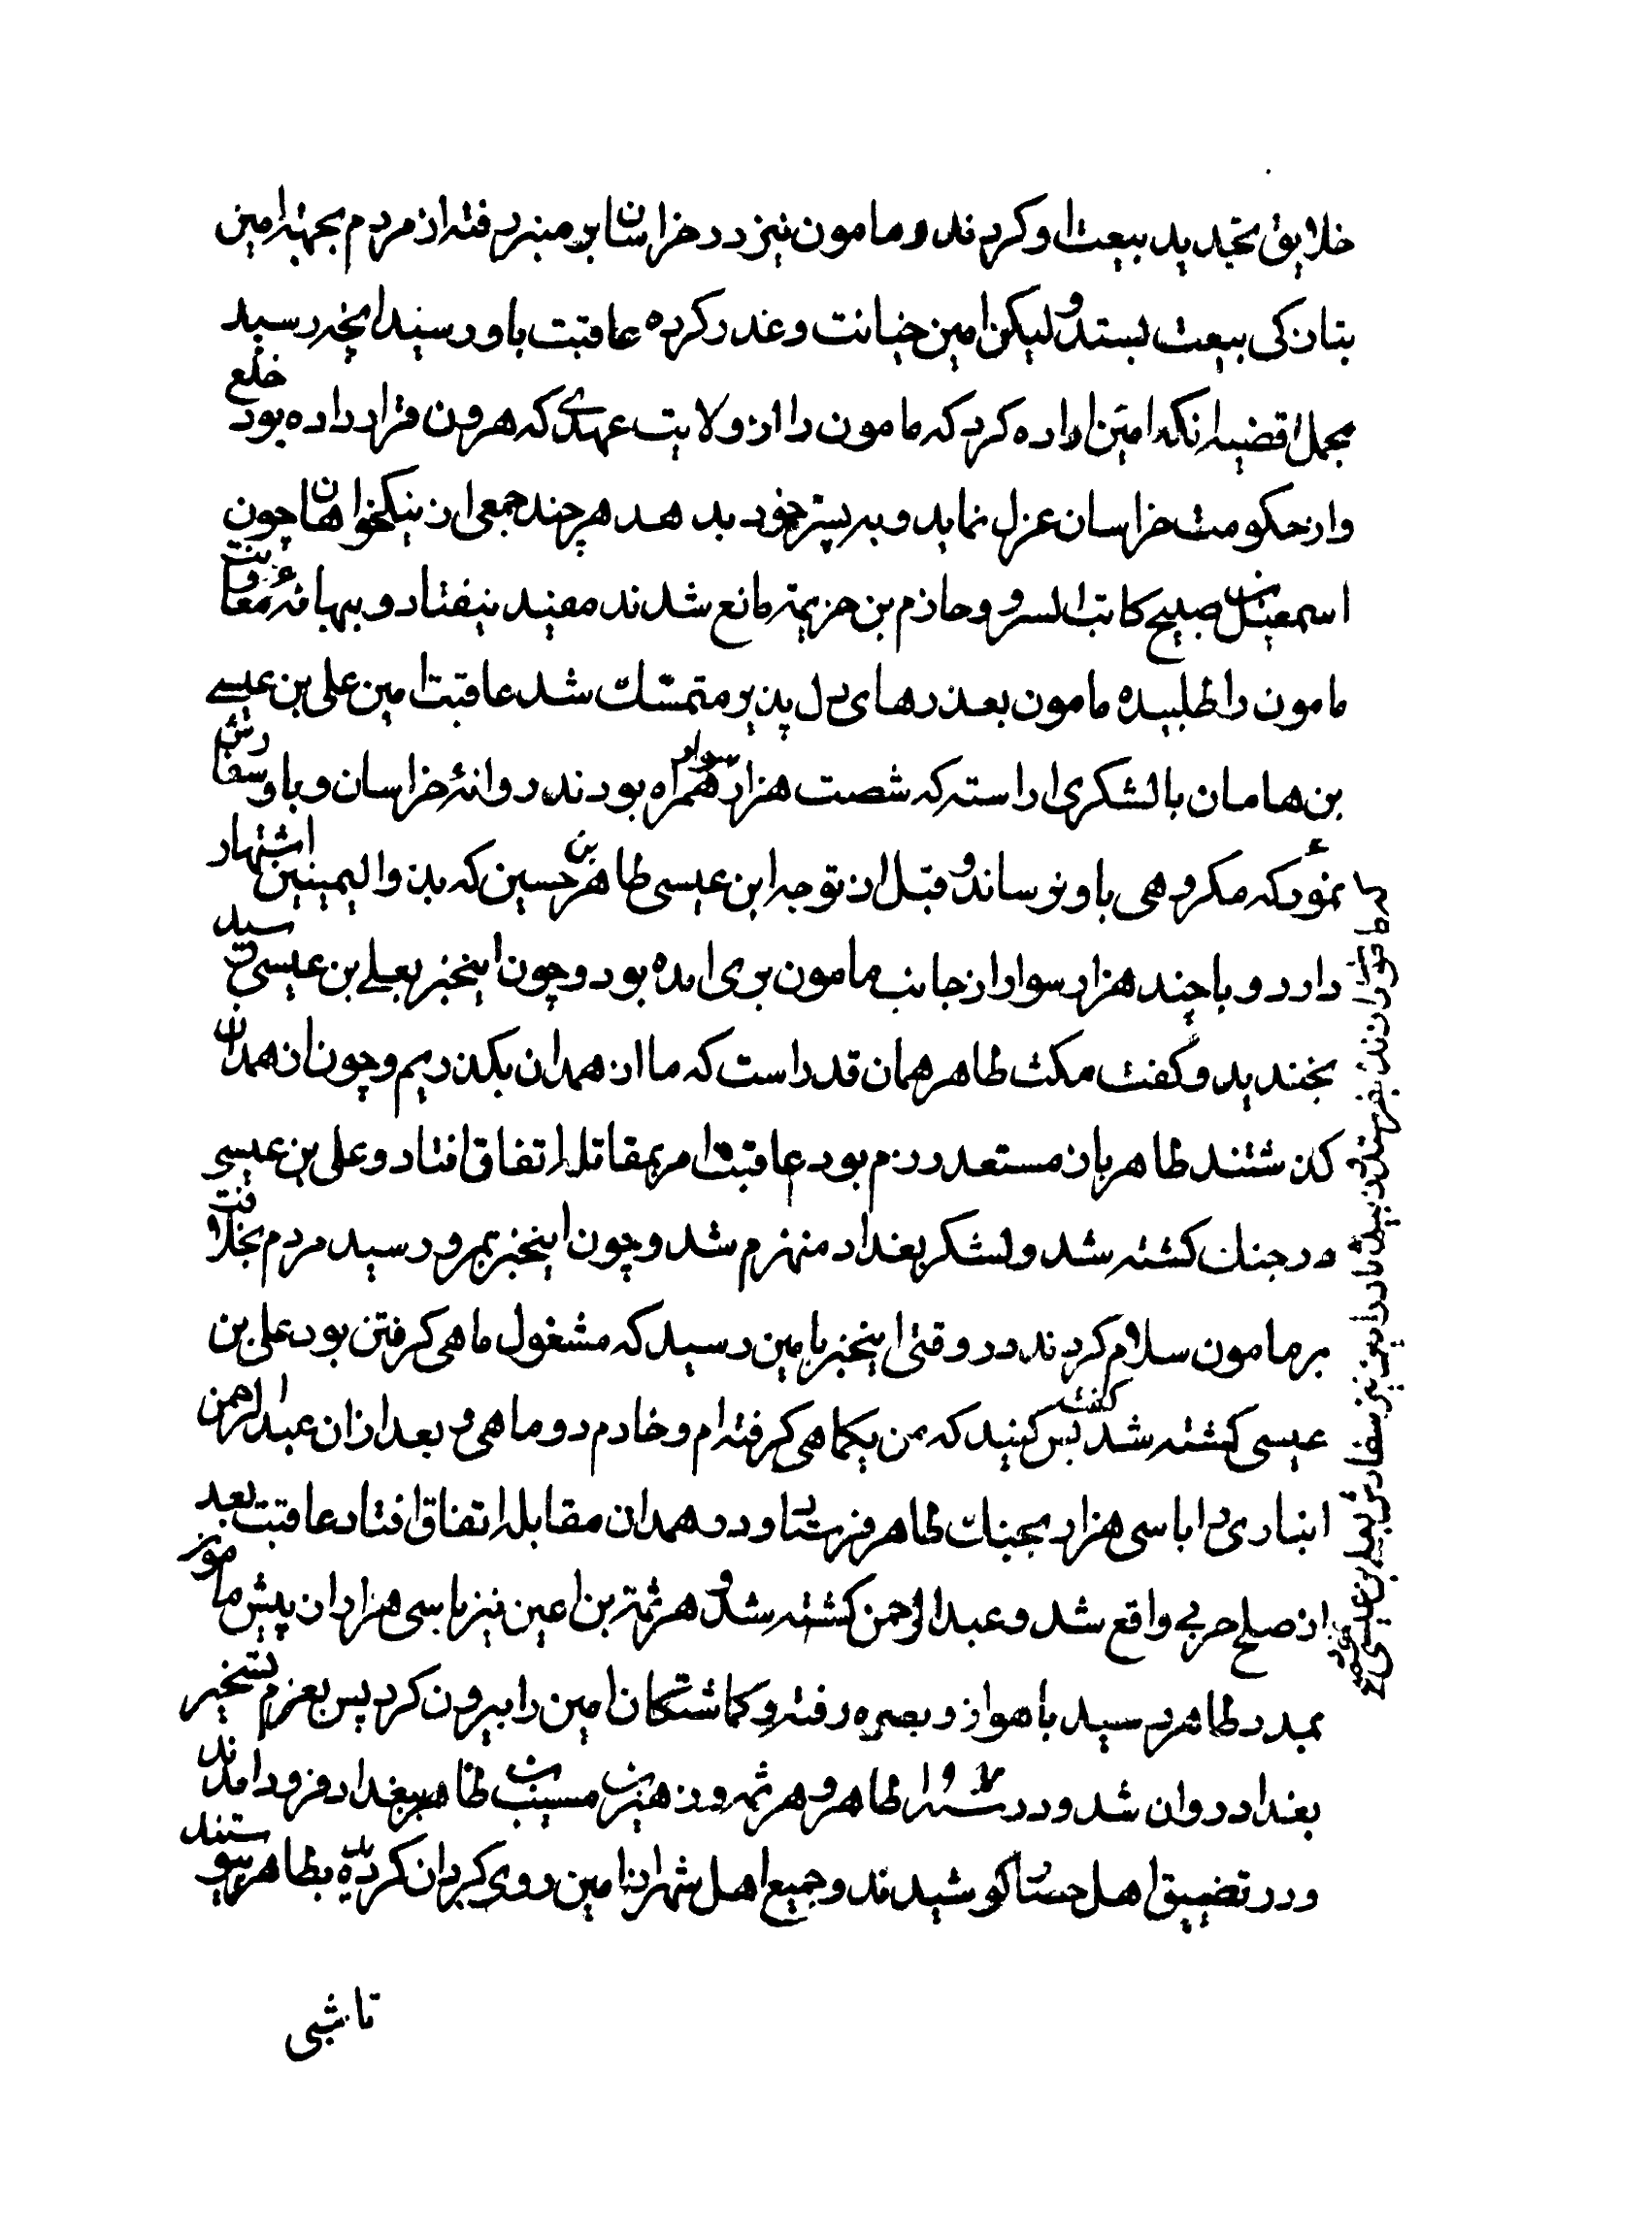 خلایق بتجدید بیعت او کردند و مامون نیز در خراسان بر منبر رفته از مردم بجهته امین
بتازکی بیعت بستد و لیکن امین خیانت و غدر کرده عاقبت باو رسید انچه رسید
مجمل قضیه انکه امین اراده کرد که مامون را از ولایت عهدی که هرون قرار داده بود خلع
و از حکومت خراسان عزل نماید و به پسر خود بدهد هر چند جمعی از نیکخواهان چون
اسمعیل بن صبیح کاتب السر و حازم بن خزیمه مانع شدند مفید نیفتاد و ببهانهٔ معاونت
مامون را طلبیده مامون بعذرهای دل پذیر متمسک شد عاقبت امین علی بن عیسی
بن هامان با لشکری اراسته که شصت هزار سوار همراه بودند روانهٔ خراسان و باو سفارش
نمود که مکروهی باو نرساند و قبل از توجه ابن عیسی طاهر بن حسین که بذو الیمینین اشتهار
دارد و با چند هزار سوار از جانب مامون بری امده بود و چون اینخبر بعلی بن عیسی رسید
بخندید و گفت مکث طاهر همان قدر است که ما از همدان بکذریم و چون از همدان
کذشتند طاهر بان مستعد رزم بود عاقبت امر بمقاتله اتفاق افتاد و علی بن عیسی
در جنک کشته شد و لشکر بغداد منهزم شد و چون اینخبر بمرو رسید مردم بخلافت
بر مامون سلام کردند و در وقتی اینخبر بامین رسید که مشغول ماهی کرفتن بود علی بن
عیسی کشته شد گفت بس کنید که من یکماهی کرفته ام و خادم دو ماهی و بعد ازان عبد الرحمن
انباری را با سی هزار بجنک طاهر فرستاد و در همدان مقابله اتفاق افتاد عاقبت بعد
از صلح حربی واقع شد و عبد الرحمن کشته شد و هرثمه بن اعین نیز با سی هزار از پیش مامون
بمدد طاهر رسید باهواز و بصره رفته و کماشتکان امین را بیرون کرد پس بعزم تسخیر
بغداد روان شد و در طاهر و هرثمه و زهیر بن مسیب بظاهر بغداد فرود امدند
و در تضییق اهل حصار کوشیدند و جمیع اهل شهر از امین روی کردان کردیده بطاهر پیوستند
تا شبی